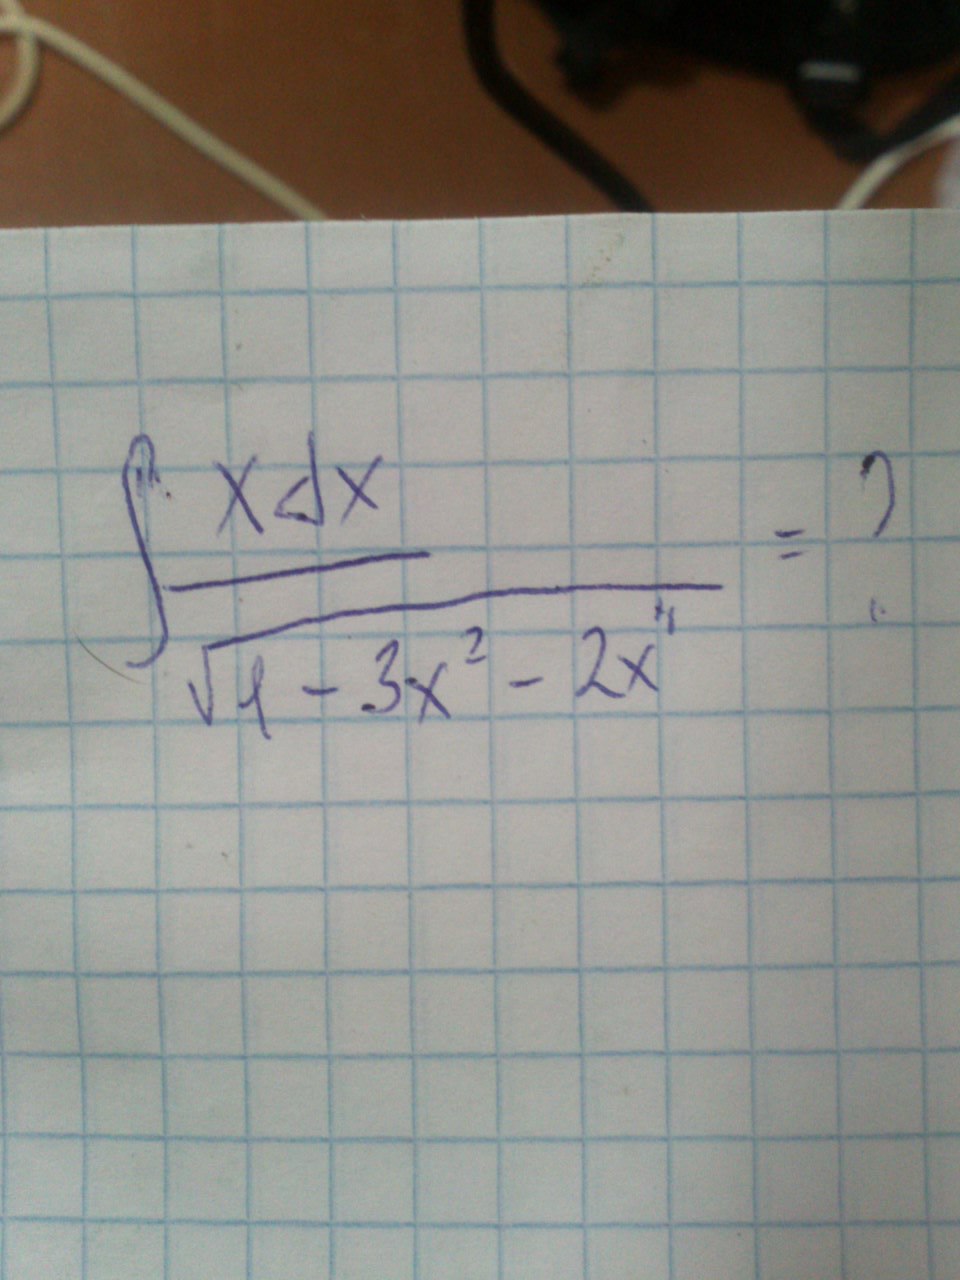 ∫ xdx / √(1 - 3x² - 2x⁴) = ?